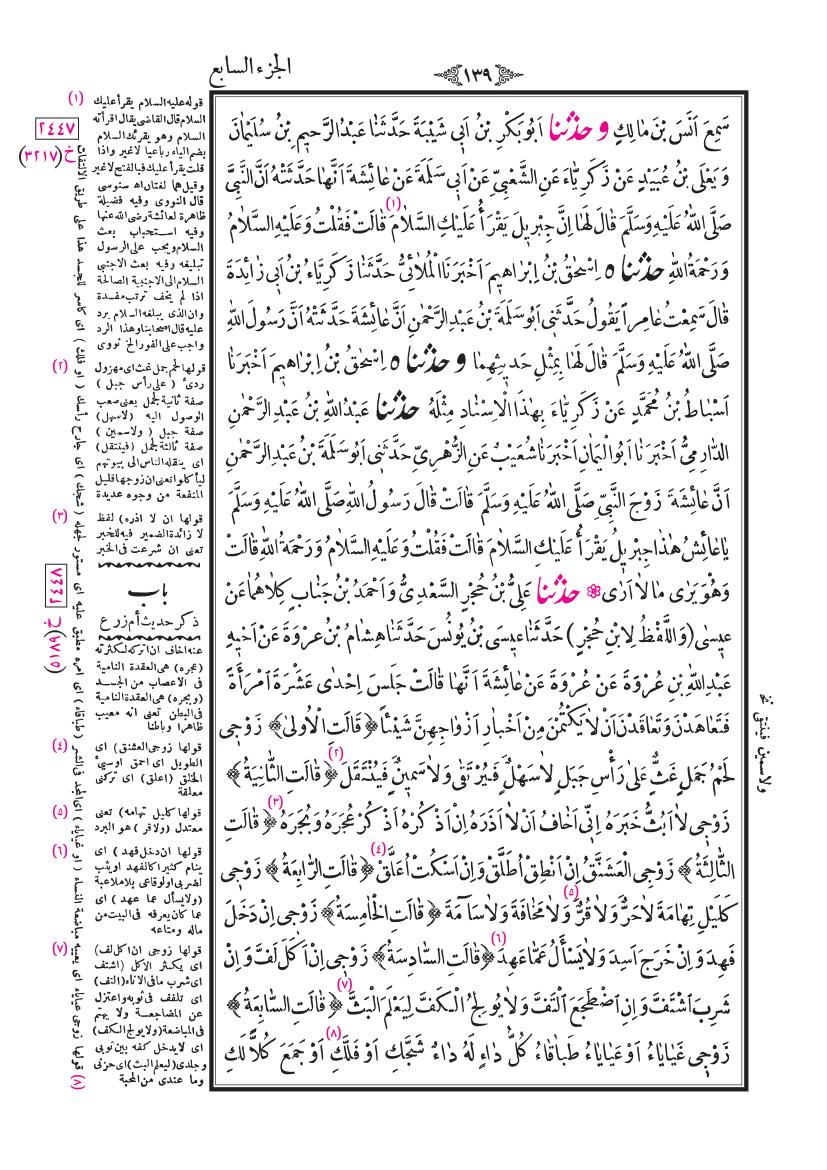 الجزء السابع
١٣٩
سَمِعَ اَنَسَ بْنَ مَالِكٍ وحدثنا اَبُو بَكْرِ بْنُ اَبِى شَيْبَةَ حَدَّثَنَا عَبْدُ الرَّحِيمِ بْنُ سُلَيْمَانَ
وَيَعْلَى بْنُ عُبَيْدٍ عَنْ زَكَرِيَّاءَ عَنِ الشَّعْبِىِّ عَنْ اَبِى سَلَمَةَ عَنْ عَائِشَةَ اَنَّهَا حَدَّثَتْهُ اَنَّ النَّبِىَّ
صَلَّى اللهُ عَلَيْهِ وَسَلَّمَ قَالَ لَهَا اِنَّ جِبْرِيلَ يَقْرَأُ عَلَيْكِ السَّلَامَ (١) قَالَتْ فَقُلْتُ وَعَلَيْهِ السَّلَامُ
وَرَحْمَةُ اللهِ حدثنا ٥ اِسْحٰقُ بْنُ اِبْرَاهِيمَ اَخْبَرَنَا الْمُلَائِىُّ حَدَّثَنَا زَكَرِيَّاءُ بْنُ اَبِى زَائِدَةَ
قَالَ سَمِعْتُ عَامِراً يَقُولُ حَدَّثَنِى اَبُو سَلَمَةَ بْنُ عَبْدِ الرَّحْمٰنِ اَنَّ عَائِشَةَ حَدَّثَتْهُ اَنَّ رَسُولَ اللهِ
صَلَّى اللهُ عَلَيْهِ وَسَلَّمَ قَالَ لَهَا بِمِثْلِ حَدِيثِهِمَا وحدثنا ٥ اِسْحٰقُ بْنُ اِبْرَاهِيمَ اَخْبَرَنَا
اَسْبَاطُ بْنُ مُحَمَّدٍ عَنْ زَكَرِيَّاءَ بِهٰذَا الْاِسْنَادِ مِثْلَهُ حدثنا عَبْدُ اللهِ بْنُ عَبْدِ الرَّحْمٰنِ
الدَّارِمِىُّ اَخْبَرَنَا اَبُو الْيَمَانِ اَخْبَرَنَا شُعَيْبٌ عَنِ الزُّهْرِىِّ حَدَّثَنِى اَبُو سَلَمَةَ بْنُ عَبْدِ الرَّحْمٰنِ
اَنَّ عَائِشَةَ زَوْجَ النَّبِىِّ صَلَّى اللهُ عَلَيْهِ وَسَلَّمَ قَالَتْ قَالَ رَسُولُ اللهِ صَلَّى اللهُ عَلَيْهِ وَسَلَّمَ
يَا عَائِشُ هٰذَا جِبْرِيلُ يَقْرَأُ عَلَيْكِ السَّلَامَ قَالَتْ فَقُلْتُ وَعَلَيْهِ السَّلَامُ وَرَحْمَةُ اللهِ قَالَتْ
وَهُوَ يَرٰى مَا لَا اَرٰى حدثنا عَلِىُّ بْنُ حُجْرٍ السَّعْدِىُّ وَاَحْمَدُ بْنُ جَنَابٍ كِلَاهُمَا عَنْ
عِيسٰى (وَاللَّفْظُ لِابْنِ حُجْرٍ) حَدَّثَنَا عِيسَى بْنُ يُونُسَ حَدَّثَنَا هِشَامُ بْنُ عُرْوَةَ عَنْ اَخِيهِ
عَبْدِ اللهِ بْنِ عُرْوَةَ عَنْ عُرْوَةَ عَنْ عَائِشَةَ اَنَّهَا قَالَتْ جَلَسَ اِحْدٰى عَشْرَةَ امْرَأَةً
فَتَعَاهَدْنَ وَتَعَاقَدْنَ اَنْ لَا يَكْتُمْنَ مِنْ اَخْبَارِ اَزْوَاجِهِنَّ شَيْئاً ﴿قَالَتِ الْاُولٰى﴾ زَوْجِى
لَحْمُ جَمَلٍ غَثٌّ عَلٰى رَأْسِ جَبَلٍ لَا سَهْلٌ فَيُرْتَقٰى وَلَا سَمِينٌ فَيُنْتَقَلَ (٢) ﴿قَالَتِ الثَّانِيَةُ﴾
زَوْجِى لَا اَبُثُّ خَبَرَهُ اِنِّى اَخَافُ اَنْ لَا اَذَرَهُ اِنْ اَذْكُرْهُ اَذْكُرْ عُجَرَهُ وَبُجَرَهُ (٣) ﴿قَالَتِ
الثَّالِثَةُ﴾ زَوْجِى الْعَشَنَّقُ اِنْ اَنْطِقْ اُطَلَّقْ وَاِنْ اَسْكُتْ اُعَلَّقْ (٤) ﴿قَالَتِ الرَّابِعَةُ﴾ زَوْجِى
كَلَيْلِ تِهَامَةَ لَا حَرٌّ وَلَا قُرٌّ (٥) وَلَا مَخَافَةَ وَلَا سَآمَةَ ﴿قَالَتِ الْخَامِسَةُ﴾ زَوْجِى اِنْ دَخَلَ
فَهِدَ وَاِنْ خَرَجَ اَسِدَ وَلَا يَسْأَلُ عَمَّا عَهِدَ (٦) ﴿قَالَتِ السَّادِسَةُ﴾ زَوْجِى اِنْ اَكَلَ لَفَّ وَاِنْ
شَرِبَ اشْتَفَّ وَاِنِ اضْطَجَعَ الْتَفَّ وَلَا يُولِجُ الْكَفَّ لِيَعْلَمَ الْبَثَّ (٧) ﴿قَالَتِ السَّابِعَةُ﴾
زَوْجِى غَيَايَاءُ اَوْ عَيَايَاءُ طَبَاقَاءُ كُلُّ دَاءٍ لَهُ دَاءٌ شَجَّكِ (٨) اَوْ فَلَّكِ اَوْ جَمَعَ كُلًّا لَكِ
ولاسمين فينتقى نخ
(١) قوله عليه السلام يقرأ عليك
السلام قال القاضى يقال اقرأته
السلام وهو يقرئك السلام
بضم الياء رباعيا لا غير واذا
قلت يقرأ عليك فبالفتح لا غير
وقيل هما لغتان اه سنوسى
قال النووى وفيه فضيلة
ظاهرة لعائشة رضى الله عنها
وفيه استحباب بعث
السلام ويجب على الرسول
تبليغه وفيه بعث الاجنبى
السلام الى الاجنبية الصالحة
اذا لم يخف ترتب مفسدة
وان الذى يبلغه السلام يرد
عليه قال اصحابنا وهذا الرد
واجب على الفور الخ نووى
(٢) قولها لحم جمل غث اى مهزول
ردئ (على رأس جبل)
صفة ثانية لجمل يعنى صعب
الوصول اليه (لاسهل)
صفة جبل (ولاسمين)
صفة ثالثة لجمل (فينتقل)
اى ينقله الناس الى بيوتهم
ليأكلوا تعنى ان زوجها قليل
المنفعة من وجوه عديدة
(٣) قولها ان لا اذره) لفظ
لا زائدة الضمير فيه للخبر
تعنى ان شرعت فى الخبر
باب
ذكر حديث أم زرع
عنه اخاف ان اتركه لكثرته
(عجره) هى العقدة النامية
فى الاعصاب من الجسد
(وبجره) هى العقدة النامية
فى البطن تعنى انه معيب
ظاهرا وباطنا
(٤) قولها زوجى العشنق) اى
الطويل اى احمق اوسيئ
الخلق (اعلق) اى تركنى
معلقة
(٥) قولها كليل تهامه) تعنى
معتدل (ولاقر) هو البرد
(٦) قولها ان دخل فهد) اى
ينام كثيرا كالفهد اويثب
لضربى اولوقاعى بلاملاعبة
(ولايسأل عما عهد) اى
عما كان يعرفه فى البيت من
ماله ومتاعه
(٧) قولها زوجى ان اكل لف)
اى يكثر الاكل (اشتف)
اى شرب مافى الاناء (التف)
اى تلفف فى ثوبه واعتزل
عن المضاجعة ولا يهتم
فى المباضعة (ولايولج الكف)
اى لايدخل كفه بين ثوبى
وجلدى (ليعلم البث) اى حزنى
وما عندى من المحبة
(٨) قولها زوجى عياياء اى يعييه مباضعة النساء (او غياياء) (طباقاء) اى امره مطبق عليه اى مستور لجهله (شجك) اى جارح رأسك (او فلك) اى كاسر الجسد هذا على طريق الالتفات
٢٤٤٧
خ (٣٢١٧)